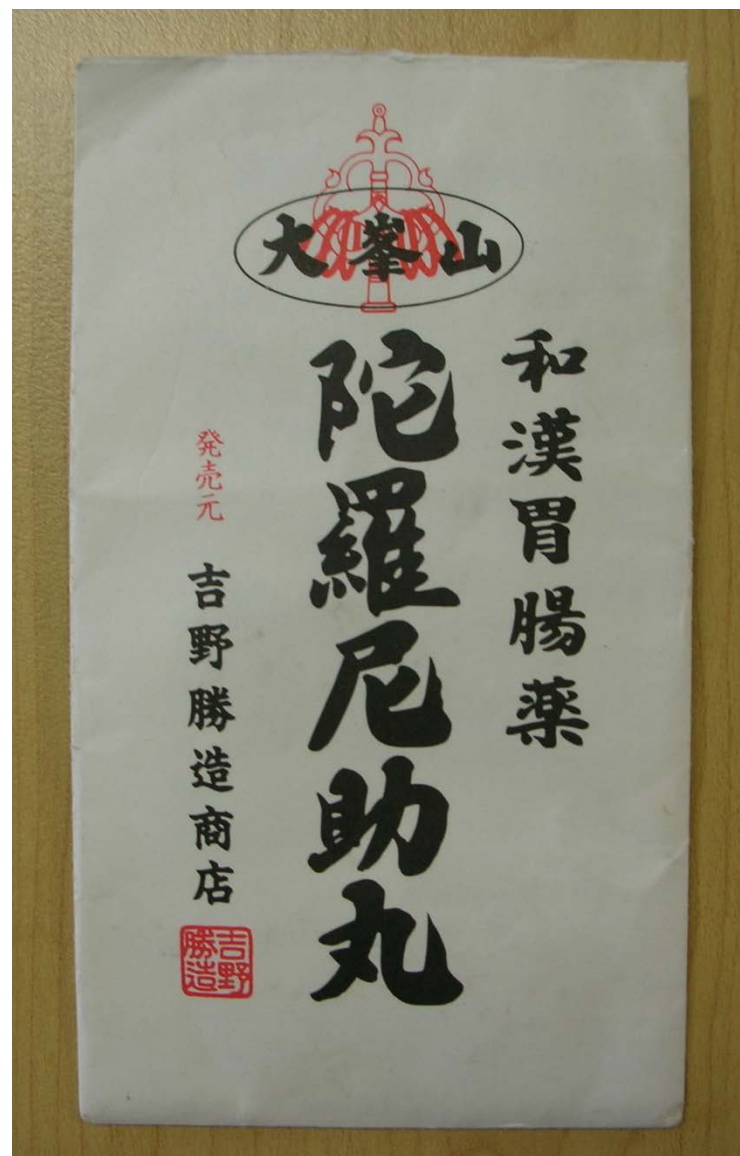 大峯山
和漢胃腸薬
陀羅尼助丸
発売元 吉野勝造商店
吉野
勝造